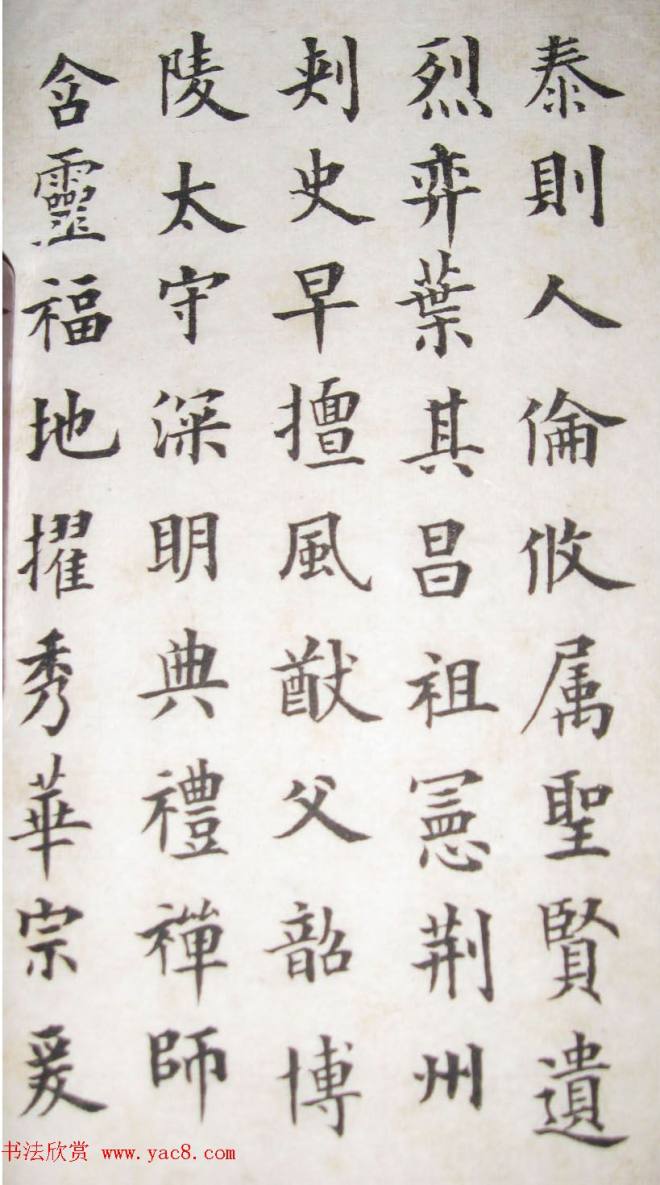 泰則人倫攸属聖賢遺
烈弈葉其昌祖憲荆州
刾史早擅風猷父韶博
陵太守深明典禮禪師
含靈福地擢秀華宗爰
书法欣赏 www.yac8.com